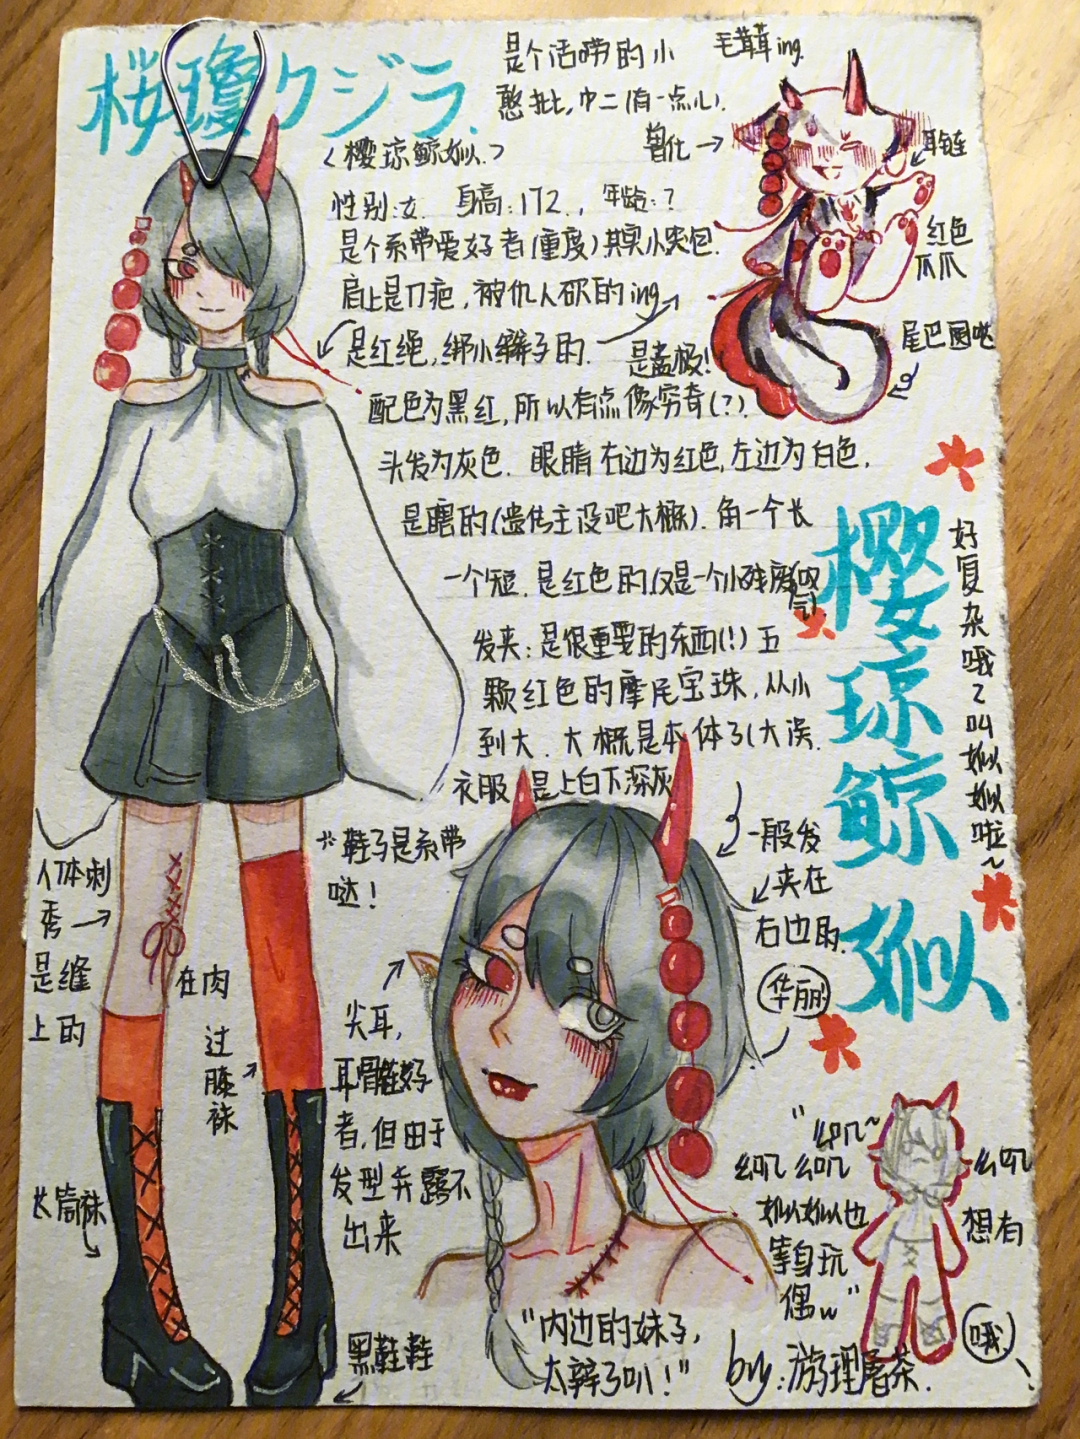 桜瓊クジラ.
<樱琼鲸姒.>
是个话唠的小
憨批,中二(有一点儿).
毛茸茸ing.
兽化→
耳链
红色
爪爪
尾巴圈哒
性别:女. 身高:172., 年龄:?
是个系带爱好者(重度)其实小哭包.
肩上是刀疤,被仇人砍的ing
是红绳,绑小辫子的.
是盖极!
配色为黑红,所以有点像穷奇(?).
头发为灰色. 眼睛右边为红色,左边为白色,
是瞎的(遗传主设吧大概). 角一个长
一个短.是红色的(仅是一个小残废(叹气).
发夹:是很重要的东西(!)五
颗红色的摩尼宝珠,从小
到大.大概是本体了(大误.
衣服 是上白下深灰
樱琼鲸姒
好复杂哦2叫姒姒啦~
*鞋子是系带
哒!
人体刺
秀→
是缝
上的
在肉
过膝袜
长筒袜
黑鞋鞋
一般发
夹在
右边的.
华丽
尖耳,
耳骨链好
者,但由于
发型并露不
出来
"内边的妹子,
太辣了叭!"
"幺叽~
幺叽幺叽
姒姒也
等身玩
偶w"
幺叽
想有
哦
by:游理屠茶.